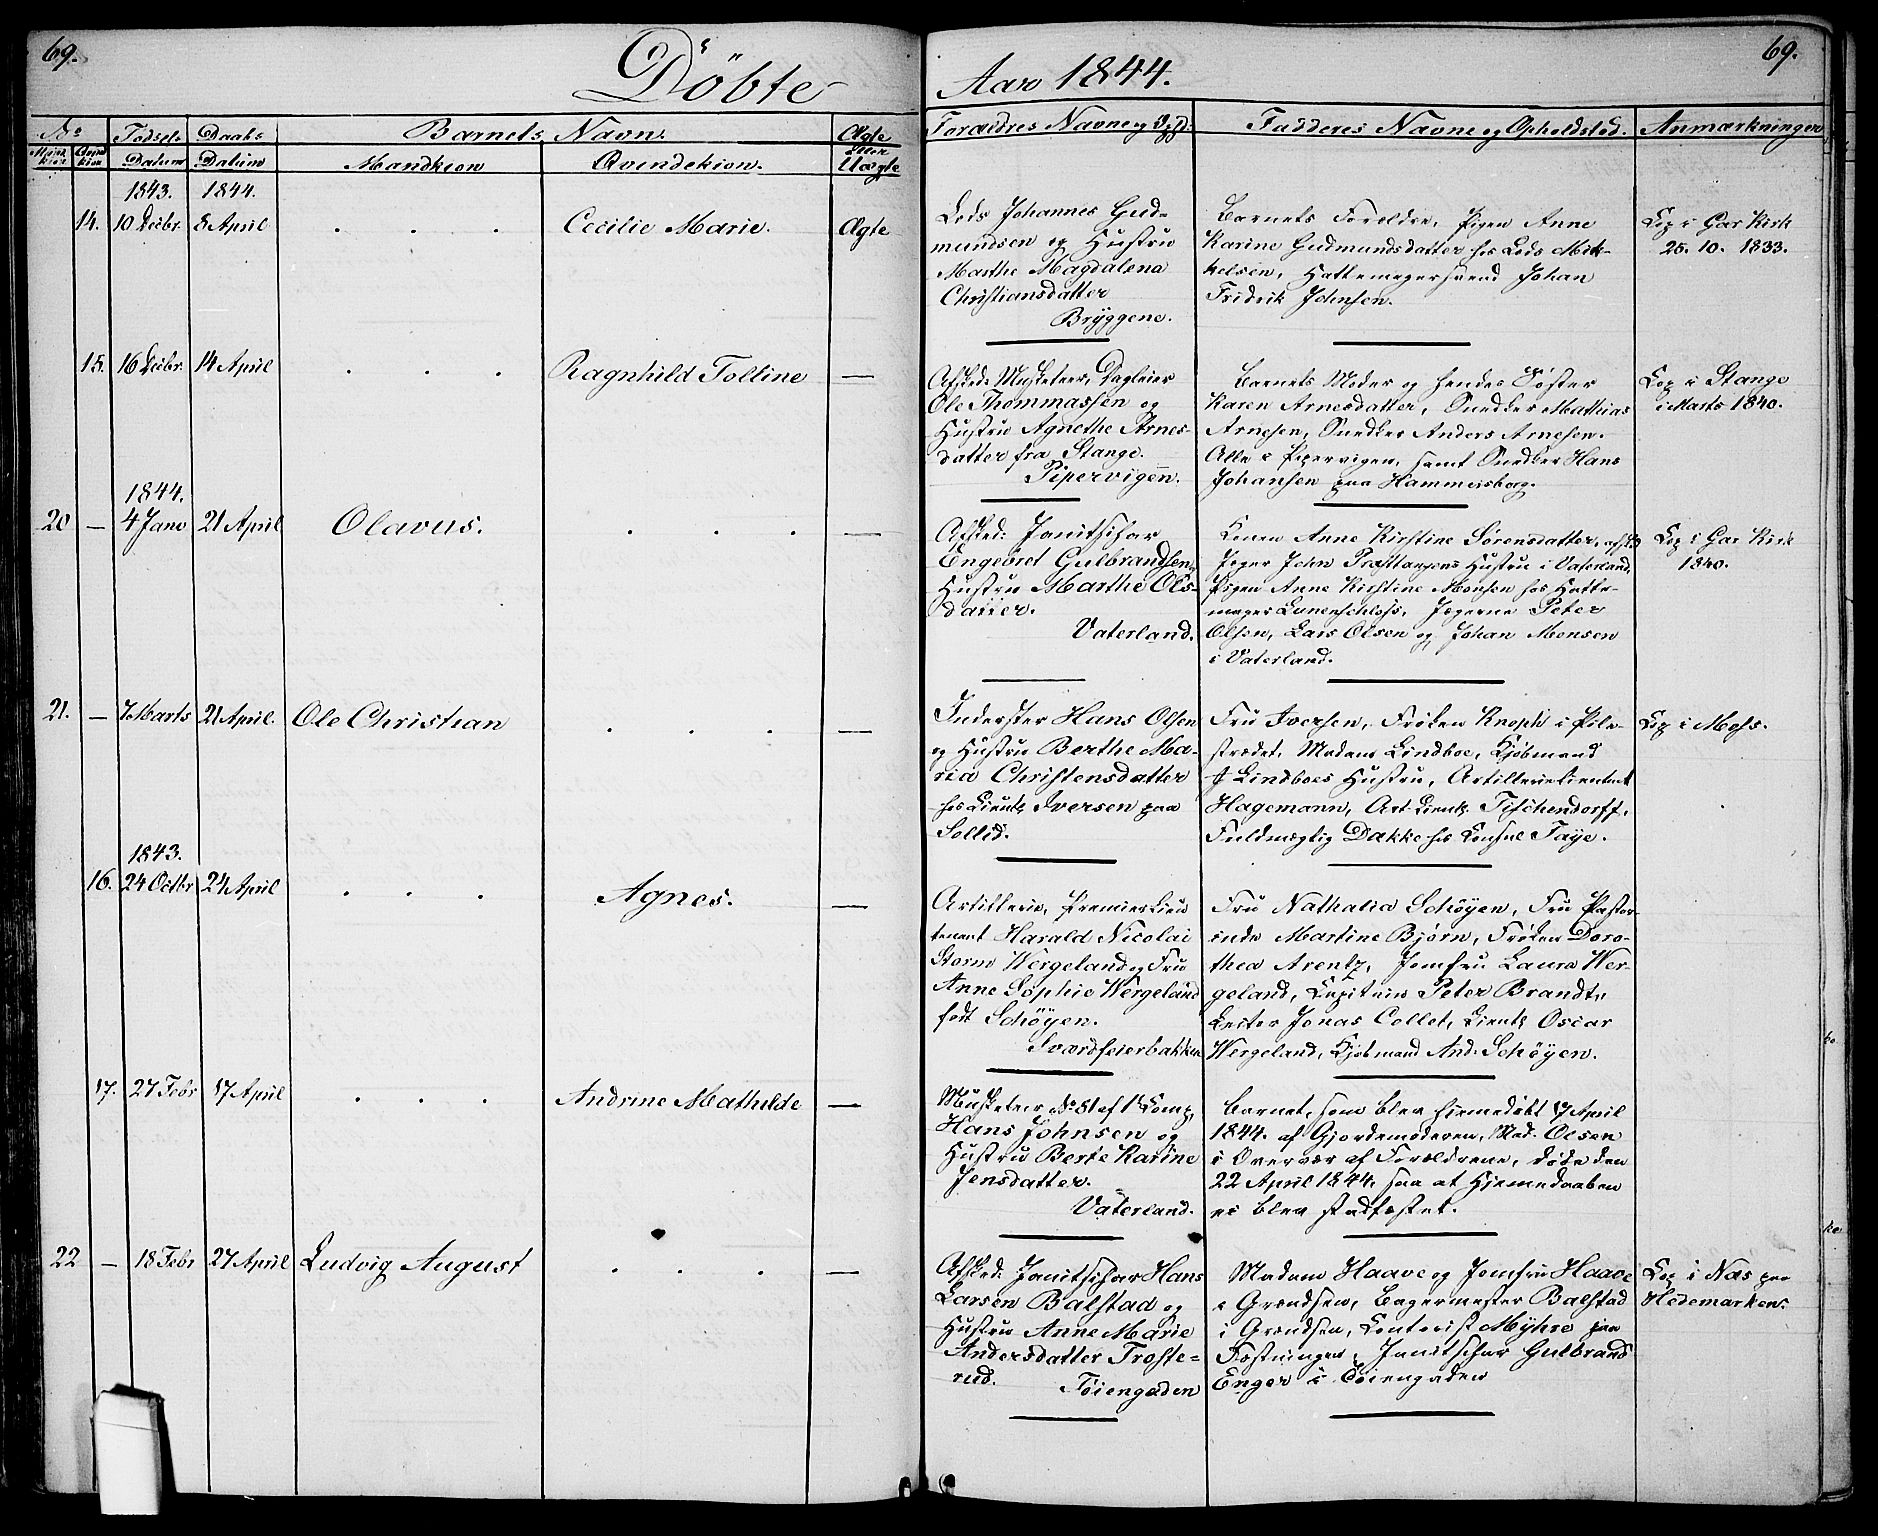 69.
Döbte
Aar 1844.
69.
No
Fødsels
Daabs
Barnets Navn.
Ægte
Forældres Navne og Opst.
Fadderes Navne og Opholdsted.
Anmærkninger
Mandkiön
Qvindekiön
Datum
Datum
Mandkiön
Qvindekiön.
eller
Uægte
1843.
1844.
14.
10 Decbr.
8 April
Cecilie Marie.
Ægte
Johannes Gud-
mundsen og Hustru
Marthe Magdalena
Christiansdatter
Bryggene.
Barnets Forældre, Pigen Anne
Karine Gudmundsdatter hos Mik-
kelsen, Hattemagersvend Johan
Fridrik Johnsen.
Cop i Gar Kirk
25. 10. 1833.
15.
16 Decbr.
14 April
Ragnhild Tolline
—
Afsked. Musketeer, Dagleier
Ole Thommassen og
Hustru Agnethe Arnes-
datter fra Stange.
Pipervigen.
Barnets Moder og hendes Søster
Karen Arnesdatter, Snedker Mathias
Arnesen, Snedker Anders Arnesen.
Alle i Pipervigen, samt Snedker Hans
Johansen paa Hammersborg.
Cop i Stange
i Marts 1840.
1844.
20
—
4 Janv
21 April
Olavus.
—
Afsked: Janitschar
Engebret Gulbrandsen,
Hustru Marthe Ols-
datter.
Vaterland.
Konen Anne Kirstine Sörensdatter, afsked
Jæger John Hustru i Vaterland,
Pigen Anne Kirstine Monsen hos Hatte-
mager Lunenschloss, Jægerne Peter
Olsen, Lars Olsen og Johan Monsen
i Vaterland.
Cop i Gar Kirk
1840.
21.
—
7 Marts
21 April.
Ole Christian
—
Inderster Hans Olsen
og Hustru Berthe Ma-
ria Christensdatter
hos Lieutn Iversen paa
Sollid.
Fru Iversen, Frøken Knoph i Pile-
strædet, Madam Lindboe, Kjøbmand
J Lindboes Hustru, Artillerielieutnant
Hagemann, Art. Lieutn Tischendorff,
Fuldmægtig Dakke hos Consul Faye.
Cop i Moss.
1843.
16.
24 Octbr
24 April
Agnes.
—
Artillerie, Premierlieu
tenant Harald Nicolai
Storm Wergeland og Fru
Anne Sophie Wergeland
født Schöyen.
Sværdfeierbakken
Fru Nathalia Schöyen, Fru Pastor-
inde Martine Björn, Frøken Doro-
thea Arentz, Jomfru Laura Wer-
geland, Capitain Peter Brandt,
Jonas Collet, Lieutn Oscar
Wergeland, Kjøbmand And. Schöyen.
17.
27 Febr
17 April
Andrine Mathilde
—
Musketeer No 51 af 1 Comp.
Hans Johnsen og
Hustru Berte Karine
Jensdatter.
Vaterland.
Barnet, som blev hjemedøbt 17 April
1844. af Gjordemoderen, Mad. Olsen
i Overvær af Forældrene, døde den
22 April 1844, saa at Hjemedaaben
ei blev stadfæstet.
22
—
18 Febr
27 April
Ludvig August
—
Afsked. Janitschar Hans
Larsen Balstad og
Hustru Anne Marie
Andersdatter Troste-
rud.
Töiengaden
Madam Haave og Jomfru Haave
i Grændsen, Bagermester Balstad
i Grændsen, Contorist Myhre paa
Fæstningen, Janitschar Gulbrand
Enger i Töiengaden
Cop i Næs paa
Hedemarken.